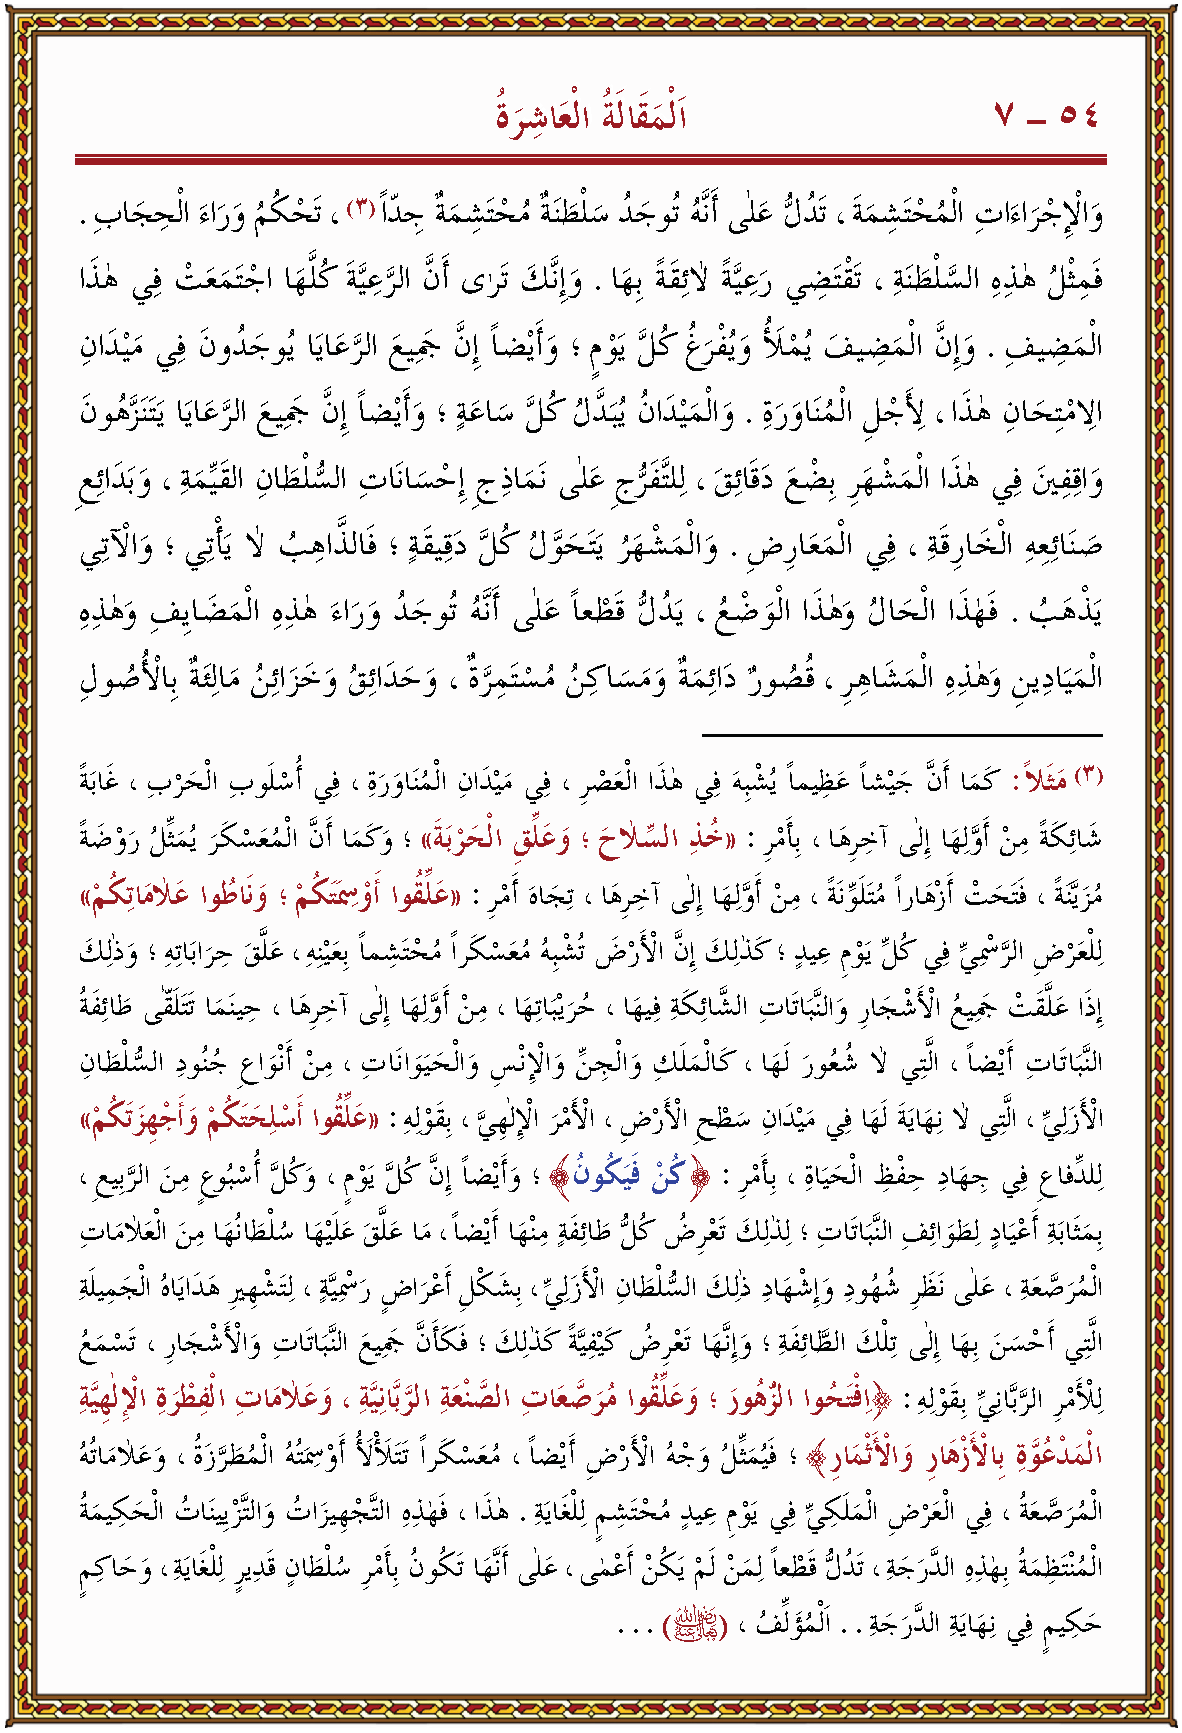 ٥٤ ـ ٧ اَلْمَقَالَةُ الْعَاشِرَةُ
وَالْإِجْرَاءَاتِ الْمُحْتَشِمَةَ ، تَدُلُّ عَلٰى أَنَّهُ تُوجَدُ سَلْطَنَةٌ مُحْتَشِمَةٌ جِدّاً (٣) ، تَحْكُمُ وَرَاءَ الْحِجَابِ .
فَمِثْلُ هٰذِهِ السَّلْطَنَةِ ، تَقْتَضِي رَعِيَّةً لَائِقَةً بِهَا . وَإِنَّكَ تَرٰى أَنَّ الرَّعِيَّةَ كُلَّهَا اجْتَمَعَتْ فِي هٰذَا
الْمَضِيفِ . وَإِنَّ الْمَضِيفَ يُمْلَأُ وَيُفْرَغُ كُلَّ يَوْمٍ ؛ وَأَيْضاً إِنَّ جَمِيعَ الرَّعَايَا يُوجَدُونَ فِي مَيْدَانِ
الِامْتِحَانِ هٰذَا ، لِأَجْلِ الْمُنَاوَرَةِ . وَالْمَيْدَانُ يُبَدَّلُ كُلَّ سَاعَةٍ ؛ وَأَيْضاً إِنَّ جَمِيعَ الرَّعَايَا يَتَنَزَّهُونَ
وَاقِفِينَ فِي هٰذَا الْمَشْهَرِ بِضْعَ دَقَائِقَ ، لِلتَّفَرُّجِ عَلٰى نَمَاذِجِ إِحْسَانَاتِ السُّلْطَانِ الْقَيِّمَةِ ، وَبَدَائِعِ
صَنَائِعِهِ الْخَارِقَةِ ، فِي الْمَعَارِضِ . وَالْمَشْهَرُ يَتَحَوَّلُ كُلَّ دَقِيقَةٍ ؛ فَالذَّاهِبُ لَا يَأْتِي ؛ وَالْآتِي
يَذْهَبُ . فَهٰذَا الْحَالُ وَهٰذَا الْوَضْعُ ، يَدُلُّ قَطْعاً عَلٰى أَنَّهُ تُوجَدُ وَرَاءَ هٰذِهِ الْمَضَايِفِ وَهٰذِهِ
الْمَيَادِينِ وَهٰذِهِ الْمَشَاهِرِ ، قُصُورٌ دَائِمَةٌ وَمَسَاكِنُ مُسْتَمِرَّةٌ ، وَحَدَائِقُ وَخَزَائِنُ مَالِئَةٌ بِالْأُصُولِ
(٣) مَثَلاً : كَمَا أَنَّ جَيْشاً عَظِيماً يُشْبِهَ فِي هٰذَا الْعَصْرِ ، فِي مَيْدَانِ الْمُنَاوَرَةِ ، فِي أُسْلُوبِ الْحَرْبِ ، غَابَةً
شَائِكَةً مِنْ أَوَّلِهَا إِلٰى آخِرِهَا ، بِأَمْرِ : «خُذِ السِّلَاحَ ؛ وَعَلِّقِ الْحَرْبَةَ» ؛ وَكَمَا أَنَّ الْمُعَسْكَرَ يُمَثِّلُ رَوْضَةً
مُزَيَّنَةً ، فَتَحَتْ أَزْهَاراً مُتَلَوِّنَةً ، مِنْ أَوَّلِهَا إِلٰى آخِرِهَا ، تِجَاهَ أَمْرِ : «عَلِّقُوا أَوْسِمَتَكُمْ ؛ وَنَاطُوا عَلَامَاتِكُمْ»
لِلْعَرْضِ الرَّسْمِيِّ فِي كُلِّ يَوْمِ عِيدٍ ؛ كَذٰلِكَ إِنَّ الْأَرْضَ تُشْبِهُ مُعَسْكَراً مُحْتَشِماً بِعَيْنِهِ ، عَلَّقَ حِرَابَاتِهِ ؛ وَذٰلِكَ
إِذَا عَلَّقَتْ جَمِيعُ الْأَشْجَارِ وَالنَّبَاتَاتِ الشَّائِكَةِ فِيهَا ، حُرَيْبَاتِهَا ، مِنْ أَوَّلِهَا إِلٰى آخِرِهَا ، حِينَمَا تَتَلَقّٰى طَائِفَةُ
النَّبَاتَاتِ أَيْضاً ، الَّتِي لَا شُعُورَ لَهَا ، كَالْمَلَكِ وَالْجِنِّ وَالْإِنْسِ وَالْحَيَوَانَاتِ ، مِنْ أَنْوَاعِ جُنُودِ السُّلْطَانِ
الْأَزَلِيِّ ، الَّتِي لَا نِهَايَةَ لَهَا فِي مَيْدَانِ سَطْحِ الْأَرْضِ ، الْأَمْرَ الْإِلٰهِيَّ ، بِقَوْلِهِ : «عَلِّقُوا أَسْلِحَتَكُمْ وَأَجْهِزَتَكُمْ»
لِلدِّفَاعِ فِي جِهَادِ حِفْظِ الْحَيَاةِ ، بِأَمْرِ : ﴿كُنْ فَيَكُونُ﴾ ؛ وَأَيْضاً إِنَّ كُلَّ يَوْمٍ ، وَكُلَّ أُسْبُوعٍ مِنَ الرَّبِيعِ ،
بِمَثَابَةِ أَعْيَادٍ لِطَوَائِفِ النَّبَاتَاتِ ؛ لِذٰلِكَ تَعْرِضُ كُلُّ طَائِفَةٍ مِنْهَا أَيْضاً ، مَا عَلَّقَ عَلَيْهَا سُلْطَانُهَا مِنَ الْعَلَامَاتِ
الْمُرَصَّعَةِ ، عَلٰى نَظَرِ شُهُودِ وَإِشْهَادِ ذٰلِكَ السُّلْطَانِ الْأَزَلِيِّ ، بِشَكْلِ أَعْرَاضٍ رَسْمِيَّةٍ ، لِتَشْهِيرِ هَدَايَاهُ الْجَمِيلَةِ
الَّتِي أَحْسَنَ بِهَا إِلٰى تِلْكَ الطَّائِفَةِ ؛ وَإِنَّهَا تَعْرِضُ كَيْفِيَّةً كَذٰلِكَ ؛ فَكَأَنَّ جَمِيعَ النَّبَاتَاتِ وَالْأَشْجَارِ ، تَسْمَعُ
لِلْأَمْرِ الرَّبَّانِيِّ بِقَوْلِهِ : ﴿اِفْتَحُوا الزُّهُورَ ؛ وَعَلِّقُوا مُرَصَّعَاتِ الصَّنْعَةِ الرَّبَّانِيَّةِ ، وَعَلَامَاتِ الْفِطْرَةِ الْإِلٰهِيَّةِ
الْمَدْعُوَّةِ بِالْأَزْهَارِ وَالْأَثْمَارِ﴾ ؛ فَيُمَثِّلُ وَجْهُ الْأَرْضِ أَيْضاً ، مُعَسْكَراً تَتَلَأْلَأُ أَوْسِمَتُهُ الْمُطَرَّزَةُ ، وَعَلَامَاتُهُ
الْمُرَصَّعَةُ ، فِي الْعَرْضِ الْمَلَكِيِّ فِي يَوْمِ عِيدٍ مُحْتَشِمٍ لِلْغَايَةِ . هٰذَا ، فَهٰذِهِ التَّجْهِيزَاتُ وَالتَّزْيِينَاتُ الْحَكِيمَةُ
الْمُنْتَظِمَةُ بِهٰذِهِ الدَّرَجَةِ ، تَدُلُّ قَطْعاً لِمَنْ لَمْ يَكُنْ أَعْمٰى ، عَلٰى أَنَّهَا تَكُونُ بِأَمْرِ سُلْطَانٍ قَدِيرٍ لِلْغَايَةِ ، وَحَاكِمٍ
حَكِيمٍ فِي نِهَايَةِ الدَّرَجَةِ . . اَلْمُؤَلِّفُ ، (رَضِيَ اللهُ تَعَالٰى عَنْهُ) . . .